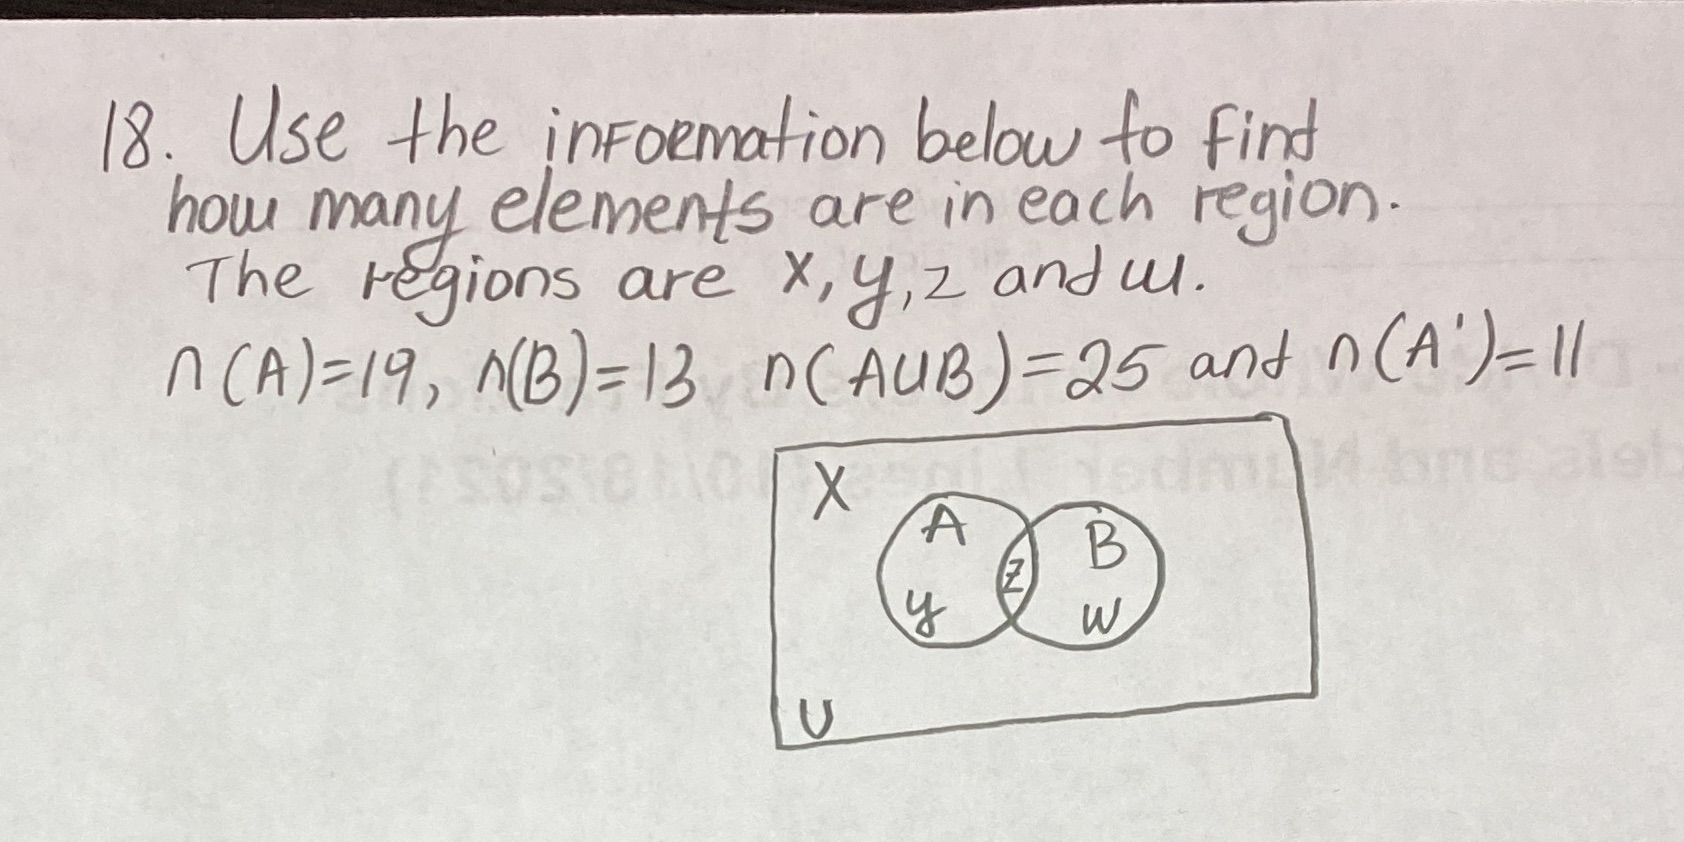 18. Use the information below to find
how many elements are in each region.
The regions are x, y, z and w.
n(A)=19, n(B)=13 n(AUB)=25 and n(A')=11
X
A
B
z
y
w
U